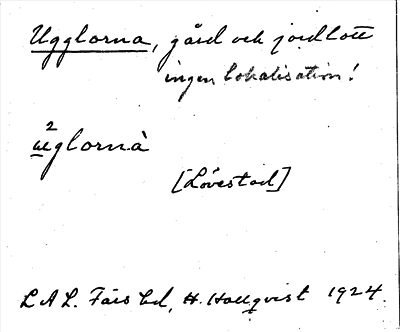 Ugglorna, gård och jordlott
ingen lokalisation!
2
uglornà
[Lövestad]
LAL. Färs hd, H. Hallqvist 1924.